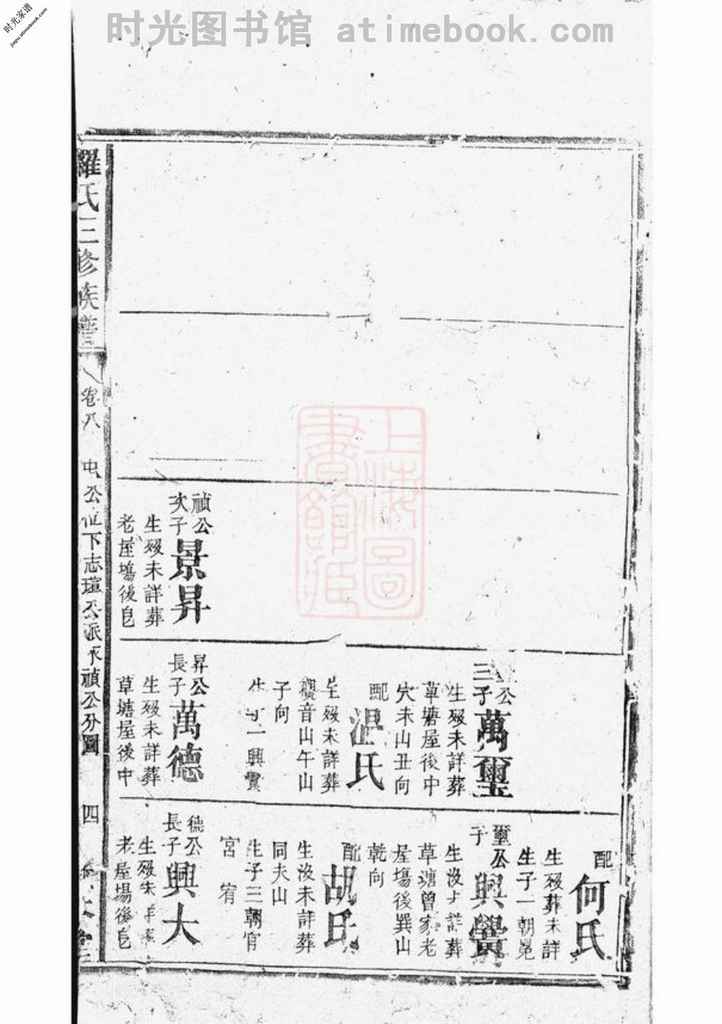 时光家谱
jiapu.atimebook.com
时光图书馆 atimebook.com
上海圖
書館藏
配
何氏
生歿葬未詳
生子一朝晃
璽公
子
興
草塘曾家老
屋塲後巽山
乾向
配
胡氏
生没未詳葬
同夫山
生子三朝官
宮宥
德公
長子
興大
老屋場後皀
公
三子
萬璽
生歿未詳葬
草塘屋後中
穴未山丑向
配
温氏
生歿未詳葬
觀音山午山
子向
昇公
長子
萬德
生歿未詳葬
草塘屋後中
禎公
次子
景昇
生歿未詳葬
老屋塲後皀
羅氏三修族譜
卷八
公位下志瑄公派永禎公分圖
四